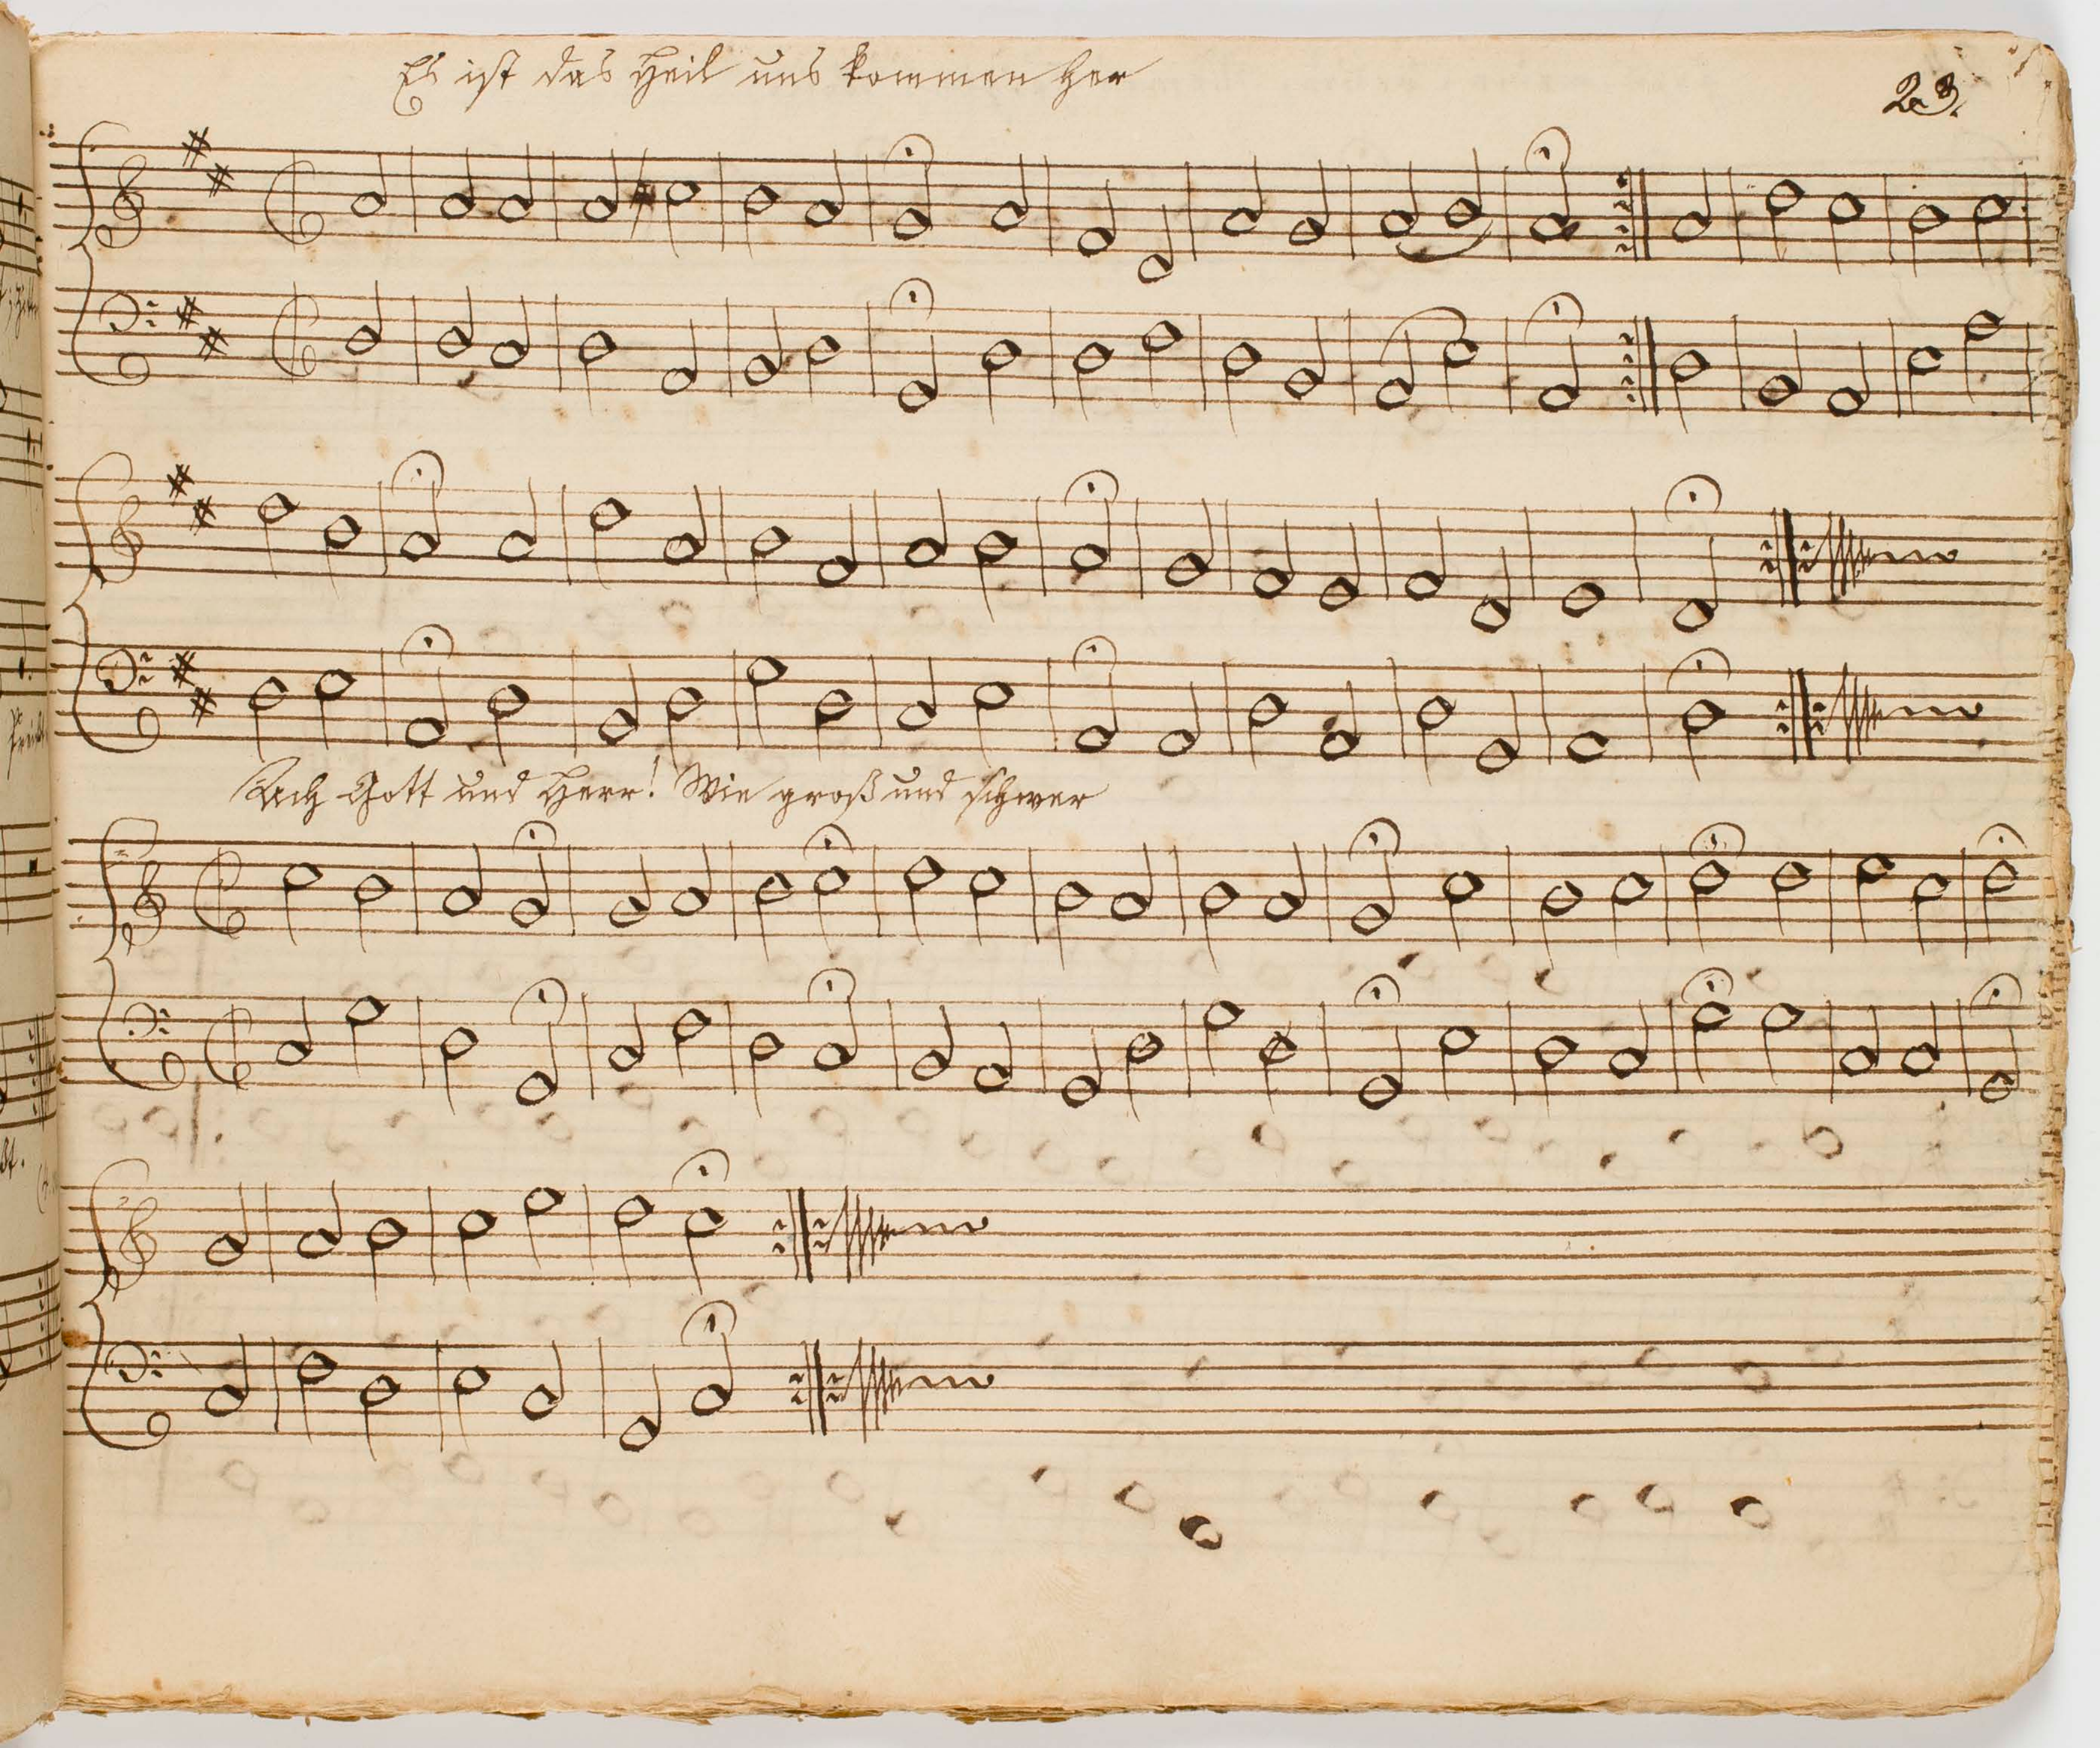 Es ist das Heil uns kommen her
23.
Ach Gott und Herr! Wie groß und schwer